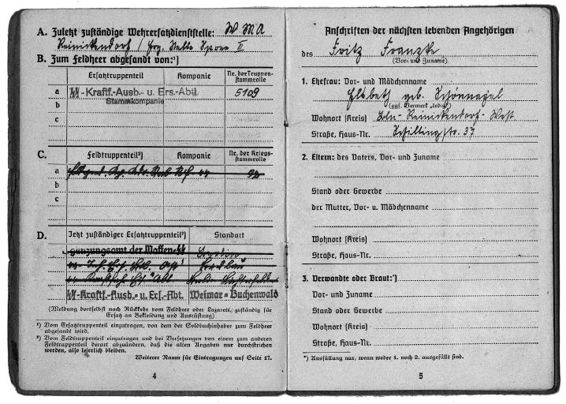 A. Zuletzt zuständige Wehrersatzdienststelle: W M A
Reinickendorf
B. Zum Feldheer abgesandt von:¹)
Ersatztruppenteil Kompanie Nr. der Truppen-
stammrolle
a ᛋᛋ-Kraftf.-Ausb.- u. Ers.-Abtl. 5109
Stammkompanie
b
c
C. Feldtruppenteil²) Kompanie Nr. der Kriegs-
stammrolle
a
b
c
D. Jetzt zuständiger Ersatztruppenteil²) Standort
Ergänzungsamt der Waffen-ᛋᛋ Berlin
ᛋᛋ-Kraftf.-Ausb.- u. Ers.-Abt. Weimar-Buchenwald
(Meldung dortselbst nach Rückkehr vom Feldheer oder Lazarett, zuständig für
Ersatz an Bekleidung und Ausrüstung)
¹) Vom Ersatztruppenteil einzutragen, von dem der Soldbuchinhaber zum Feldheer
abgesandt wird.
²) Vom Feldtruppenteil einzutragen und bei Versetzungen von einem zum anderen
Feldtruppenteil derart abzuändern, daß die alten Angaben nur durchstrichen
werden, also leserlich bleiben.
Weiterer Raum für Eintragungen auf Seite 17.
4
Anschriften der nächsten lebenden Angehörigen
des Fritz Franzke
(Vor- und Zuname)
1. Ehefrau: Vor- und Mädchenname
Elsbeth geb. Schönnagel
(ggf. Vermerk „ledig“)
Wohnort (Kreis) Bln.-Reinickendorf-West
Straße, Haus-Nr. Schillingstr. 37
2. Eltern: des Vaters, Vor- und Zuname
Stand oder Gewerbe
der Mutter, Vor- u. Mädchenname
Wohnort (Kreis)
Straße, Haus-Nr.
3. Verwandte oder Braut:*)
Vor- und Zuname
Stand oder Gewerbe
Wohnort (Kreis)
Straße, Haus-Nr.
*) Ausfüllung nur, wenn weder 1. noch 2. ausgefüllt sind.
5